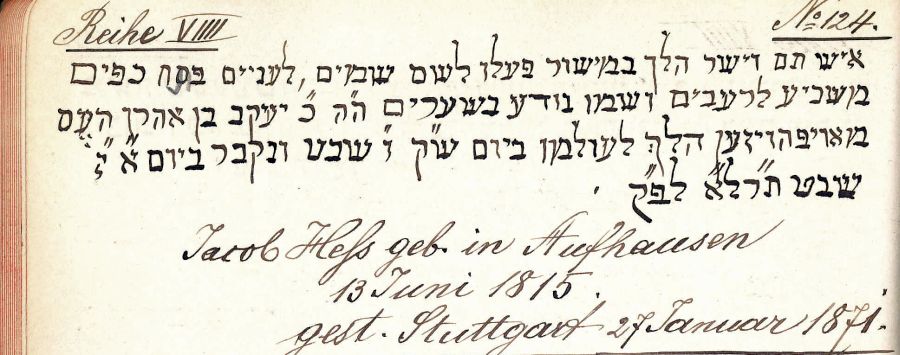 Reihe VIIII № 124.
איש תם וישר הלך במישור פעלו לשום שמים, לעניים פתח כפים
משביע לרעבים ושמו נודע בשערים ה"ה כ' יעקב בן אהרן העס
מאויפהויזען הלך לעולמו ביום ש"ק ו' שבט ונקבר ביום א' ז'
שבט תרל"א לפ"ק.
Jacob Heß geb. in Aufhausen
13 Juni 1815.
gest. Stuttgart 27 Januar 1871.